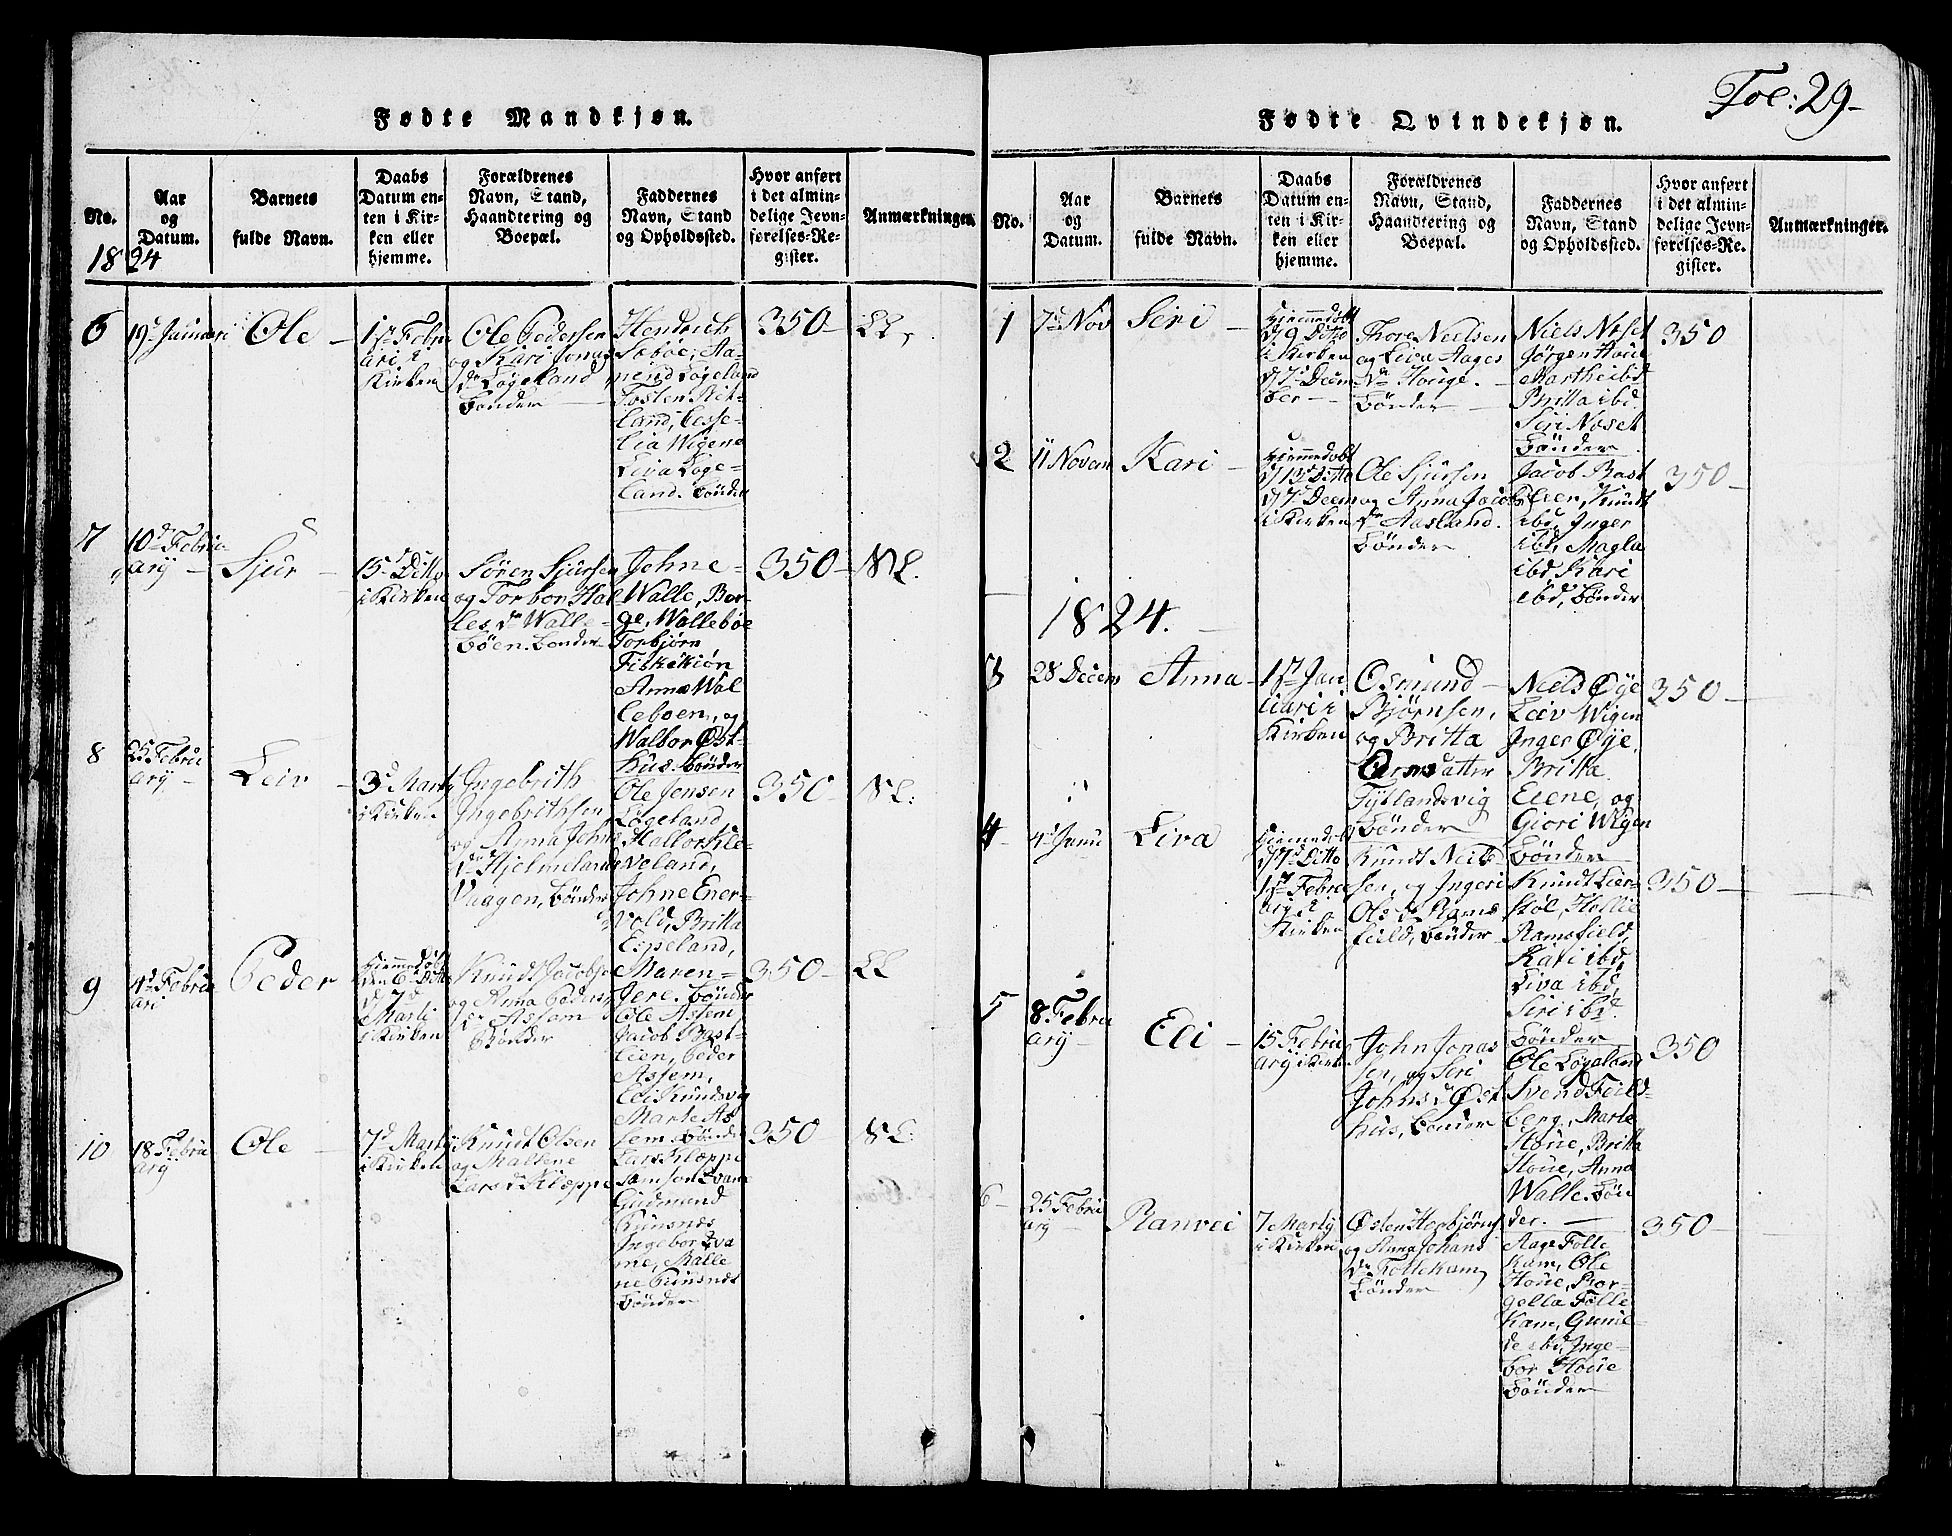 Fol: 29
Fødte Mandkjøn.
No.
Aar
og
Datum.
Barnets
fulde Navn.
Daabs
Datum en-
ten i Kir-
ken eller
hjemme.
Forældrenes
Navn, Stand,
Haandtering og
Boepæl.
Faddernes
Navn, Stand
og Opholdssted.
Hvor anført
i det almin-
delige Jevn-
førelses-Re-
gister.
Anmærkninger.
1824
6
19d Januari
Ole
1st Febru
ari i
Kirken
Ole Pedersen
og Kari Jonas
Dr Løgeland
bønder
Hendrich
Søbøe, Aa-
nend Løgeland
Tosten Rit-
land,
lia Wigene
Liva Løge-
land. bønder
350
7
10d Febru
ary
Sjur
15 Ditto
i Kirken
Søren Sjursen
og Torbor Hal
les Dr Walle-
bøen. bønder
Johne
Walle, Bor-
ge Wallebøe
Torbjørn
Fiskekiøn
Anna Wal
leboen, og
Walbor Øst-
hus. bønder
350
8
25 Febru
ary
Leiv
3d Marty
i Kirken
Ingebrith
Ingebrithsen
og Anna Johns
Dr Hjelmeland
Vaagen, bønder
Ole Jensen
Løgeland
Hallor Kle-
veland,
Johne Ener-
vold, Britta
Espeland,
Maren
Jere. bønder
350
9
4d Febru
ari
Peder
Hiemmedøbt
den 6 Ditto
d 7d
Marti
i Kirken
Knudt Jacobs
og Anna Peders
Dr Assem
Bønder
Ole Assem,
Jacob Bast-
lien, Peder
Assem,
Eli Knudsvig
Marte As
sem bønder
350
10
18 Febru
ary
Ole
7d Marty
i Kirken
Knudt Olsen
og Maltene
Lars Dr Klæppe
Lars Klæppe
Samson Evane
Gudmund
Funsnes
Ingebor Eva
ne, Malle
ne Funsnes
bønder
350
Fødte Qvindekjøn.
No.
Aar
og
Datum.
Barnets
fulde Navn.
Daabs
Datum en-
ten i Kir-
ken eller
hjemme.
Forældrenes
Navn, Stand,
Haandtering og
Boepæl.
Faddernes
Navn, Stand
og Opholdssted.
Hvor anført
i det almin-
delige Jevn-
førelses-Re-
gister.
Anmærkninger.
1
7d Nov
Seri
Hiemmedøbt
d 9 Ditto
i Kirken
d 7d Decem
ber
Thore Nielsen
og Liva Aages
Dr Houge.
bønder
Niels Neset
Jørgen Houe
Marthe ibd
Britta ibd.
Siri Noset
bønder
350
2
11 Novem
Kari
Hiemmedøbt
d 13d Ditto
d 7d Decem
i Kirken
Ole Sjursen
og Anna Jacobs
Dr Aasland.
bønder
Jacob Bast
lien, Knudt
ibd, Inger
ibd, Magla
ibd, Kari
ibd, bønder
350
1824.
3
28 Decem
Anna
1st Jan
uari i
Kirken
Osmund
Bjørnsen,
og Britta
Ornsdatter
Tytlandsvig
bønder
Niels Øye
Leiv Wigen
Inger Øye,
Britta
Eiene, og
Giøri Wigen
bønder
350
4
4d Janu
Liva
Hiemmedøbt
d 7d Ditto
1st Febru
ary i
Kirken
Knudt Niel
sen, og Ingeri
Ols Dr Rams
field, bønder
Knudt Lier-
støl, Hellie
Ramsfield,
Kari ibd,
Liva ibd,
Siri ibd.
bønder
350
5
8 Febru
ary
Eli
15 Febru
ary i Kirken
John Jonas
sen, og Seri
Johns Dr Øst
hus, bønder
Ole Løgeland
Svend Field-
berg, Marte
Houe, Britta
Houe, Anna
Walle. bøn
der.
350
6
25 Febru
ary
Ranvei
7 Marty
i Kirken
Østen Hogbjørns
og Anna Johans
Dr Follekam
bønder
Aage Folle
kam, Ole
Houe, Bor-
gella Folle
kam, Gunil
de ibd, Inge-
bor Houe
bønder
350